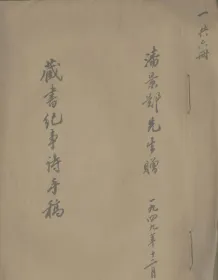 一 共六冊
潘景鄭先生贈
一九四九年十二月
藏書紀事詩手稿